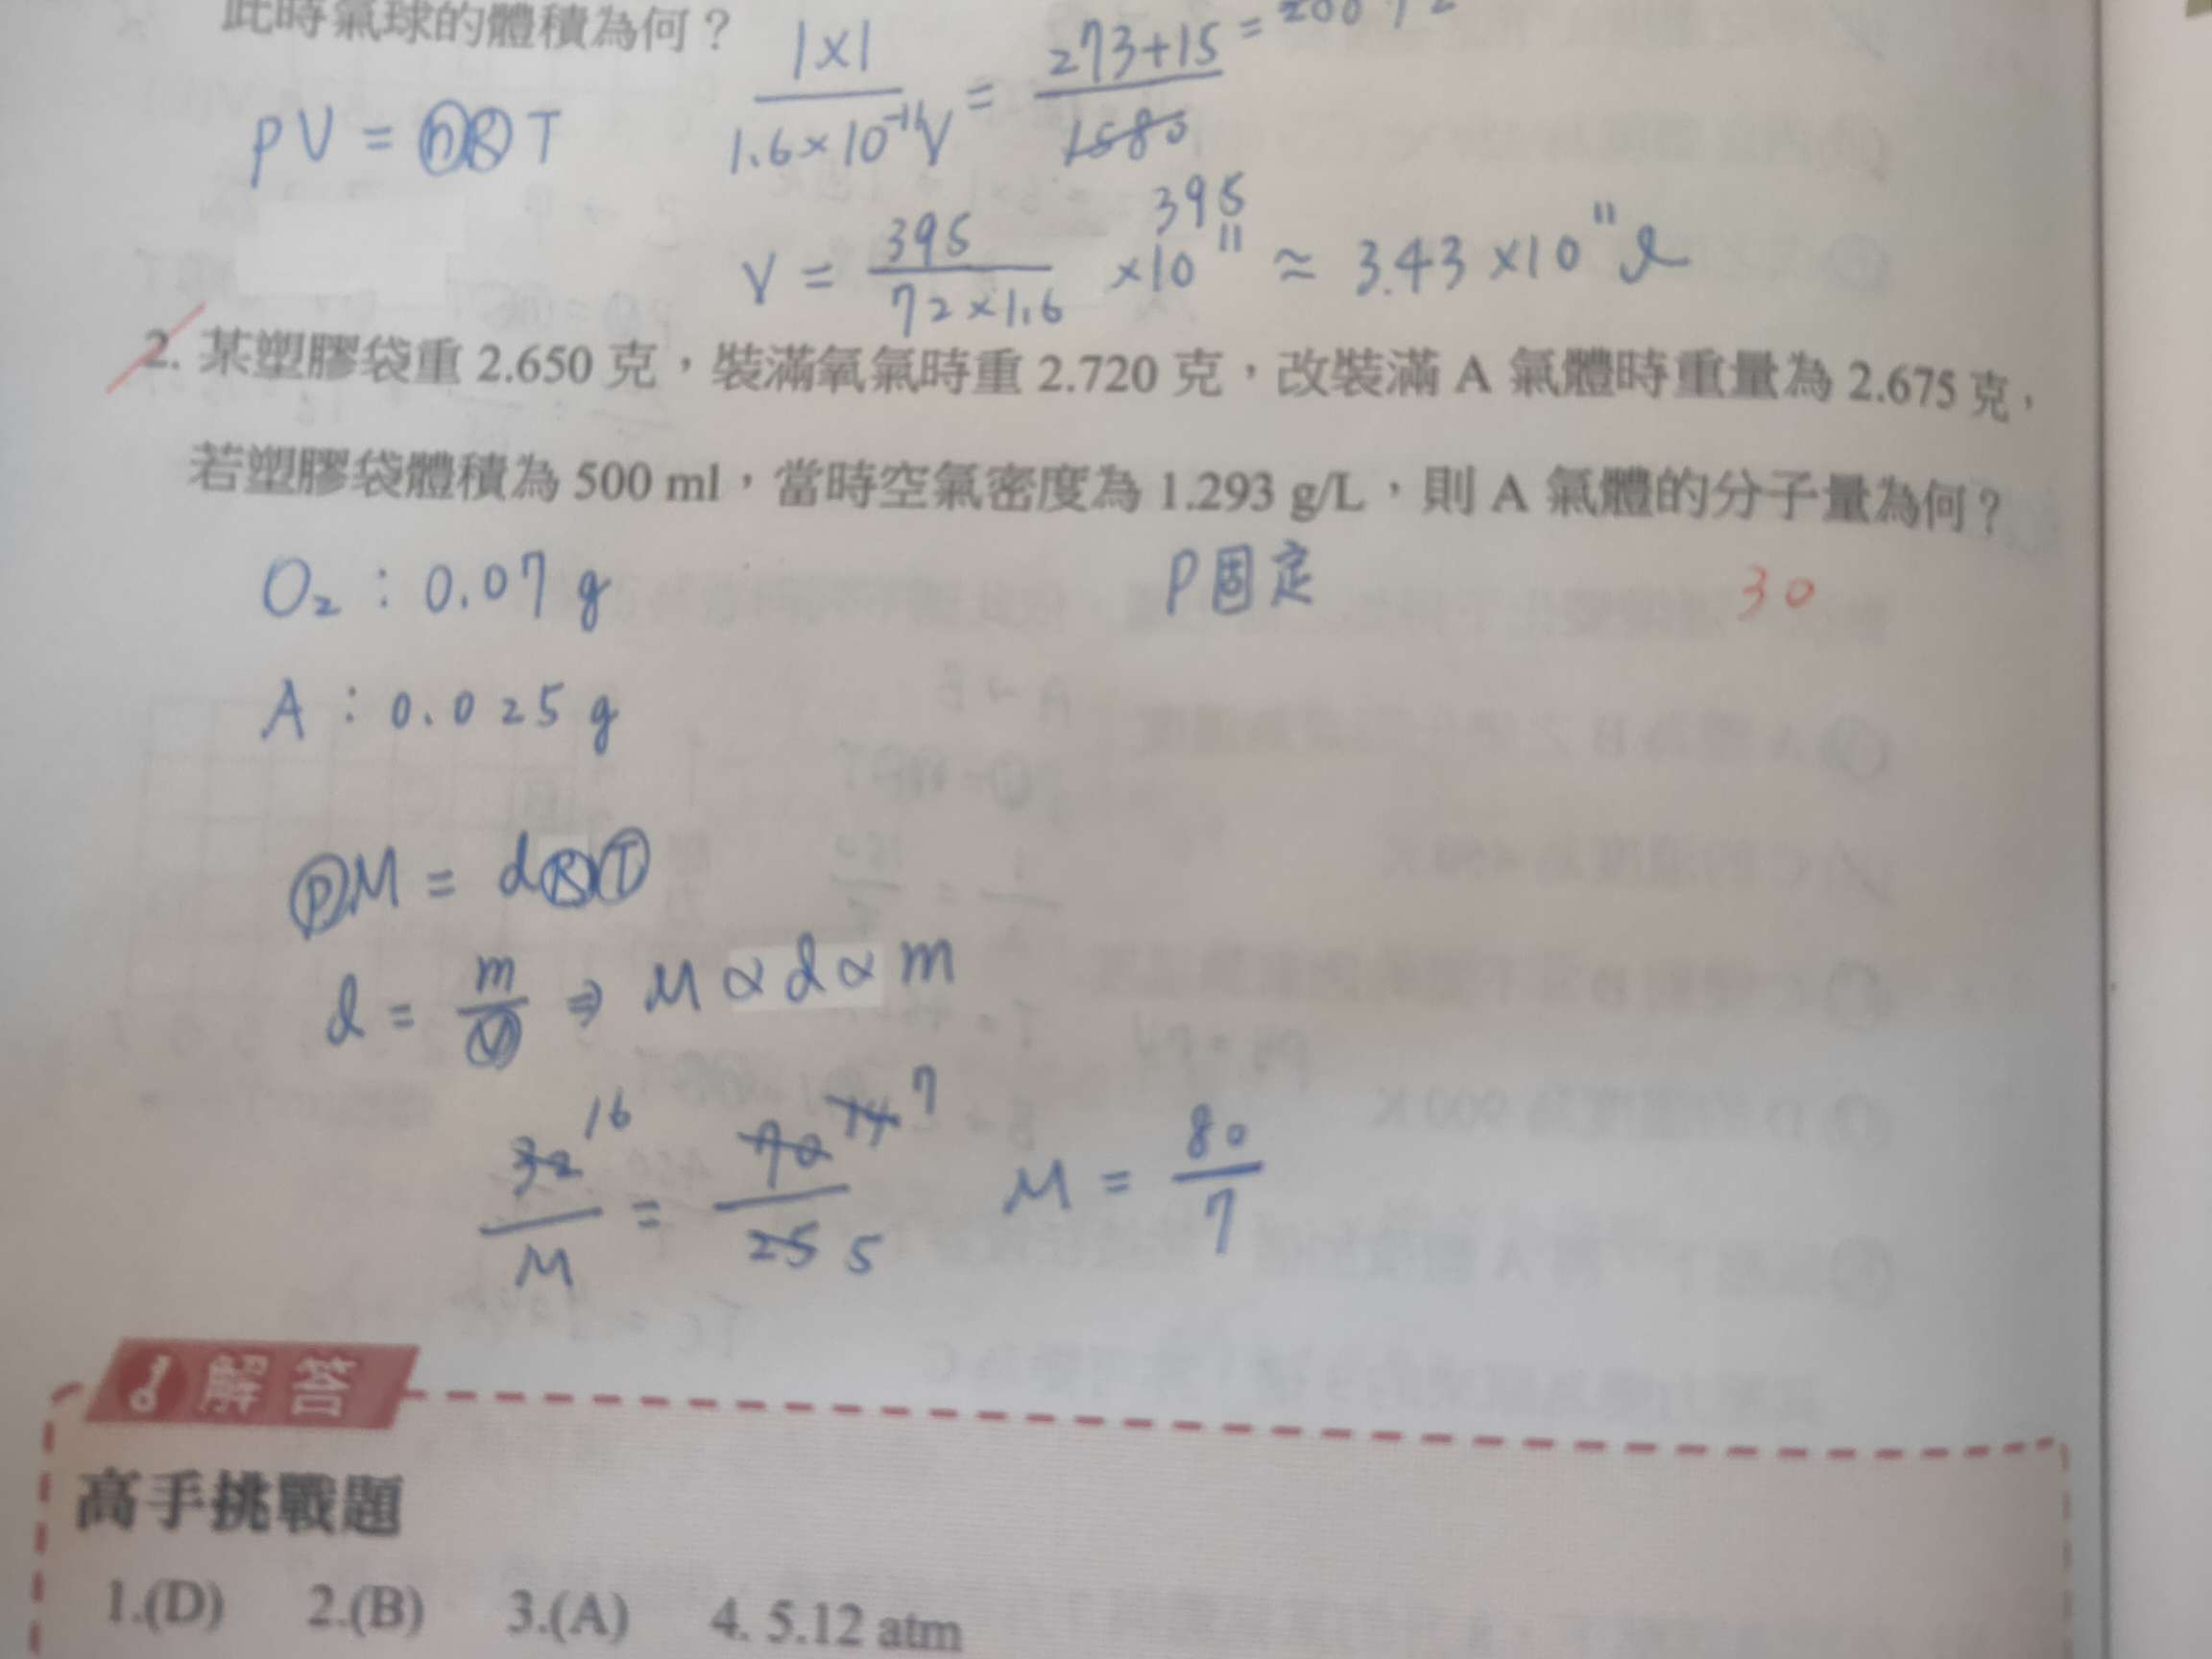 此時氣球的體積為何？
1×1 / 1.6×10⁻¹¹V = 273+15 / 1580
PV = nRT
395
V = 395 / 72×1.6 ×10¹¹ ≈ 3.43×10¹¹ℓ
2. 某塑膠袋重 2.650 克，裝滿氧氣時重 2.720 克，改裝滿 A 氣體時重量為 2.675 克，
若塑膠袋體積為 500 ml，當時空氣密度為 1.293 g/L，則 A 氣體的分子量為何？
O₂ : 0.07 g P固定 30
A : 0.025 g
PM = dRT
d = m/V ⇒ M ∝ d ∝ m
16 14 7
32/M = 70/25 5 M = 80/7
解答
高手挑戰題
1.(D) 2.(B) 3.(A) 4. 5.12 atm